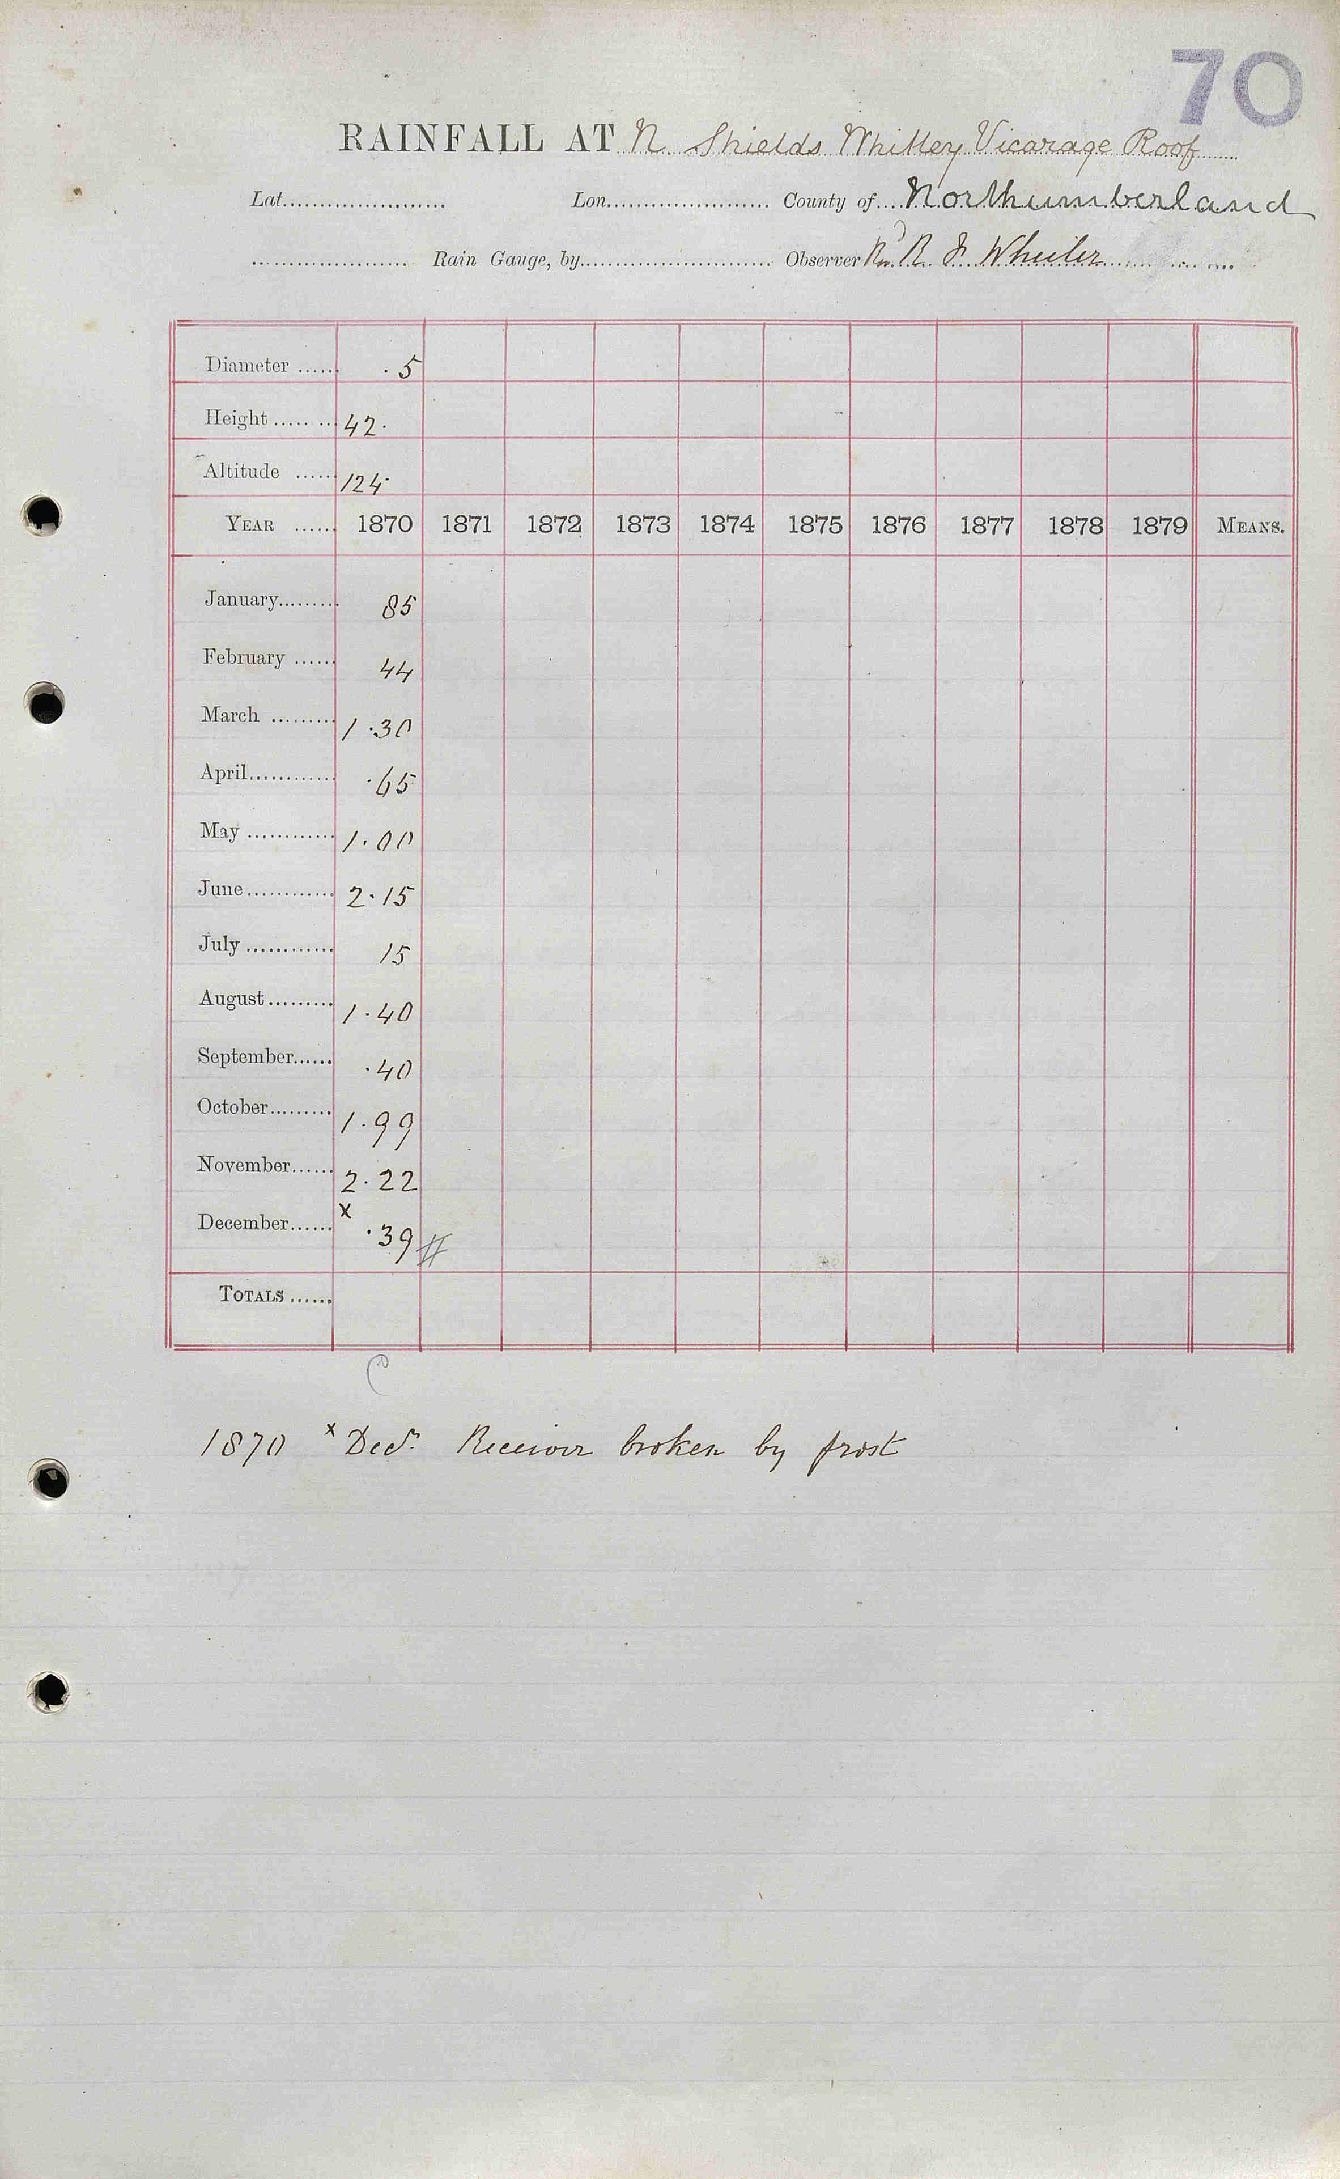 70
RAINFALL AT N. Shields Whitley Vicarage Roof
Lat...................... Lon...................... County of....Northumberland
..................... Rain Gauge, by......................... Observer Rev. R. F. Wheeler
Diameter ...... .5
Height ........ 42.
Altitude ...... 124.
YEAR ...... 1870 1871 1872 1873 1874 1875 1876 1877 1878 1879 MEANS.
January......... 85
February ...... 44
March ......... 1.30
April............ .65
May ............ 1.00
June............ 2.15
July ............ 15
August......... 1.40
September...... .40
October......... 1.99
November...... 2.22
December...... x .39 #
TOTALS ......
1870 x Decr. Receiver broken by frost